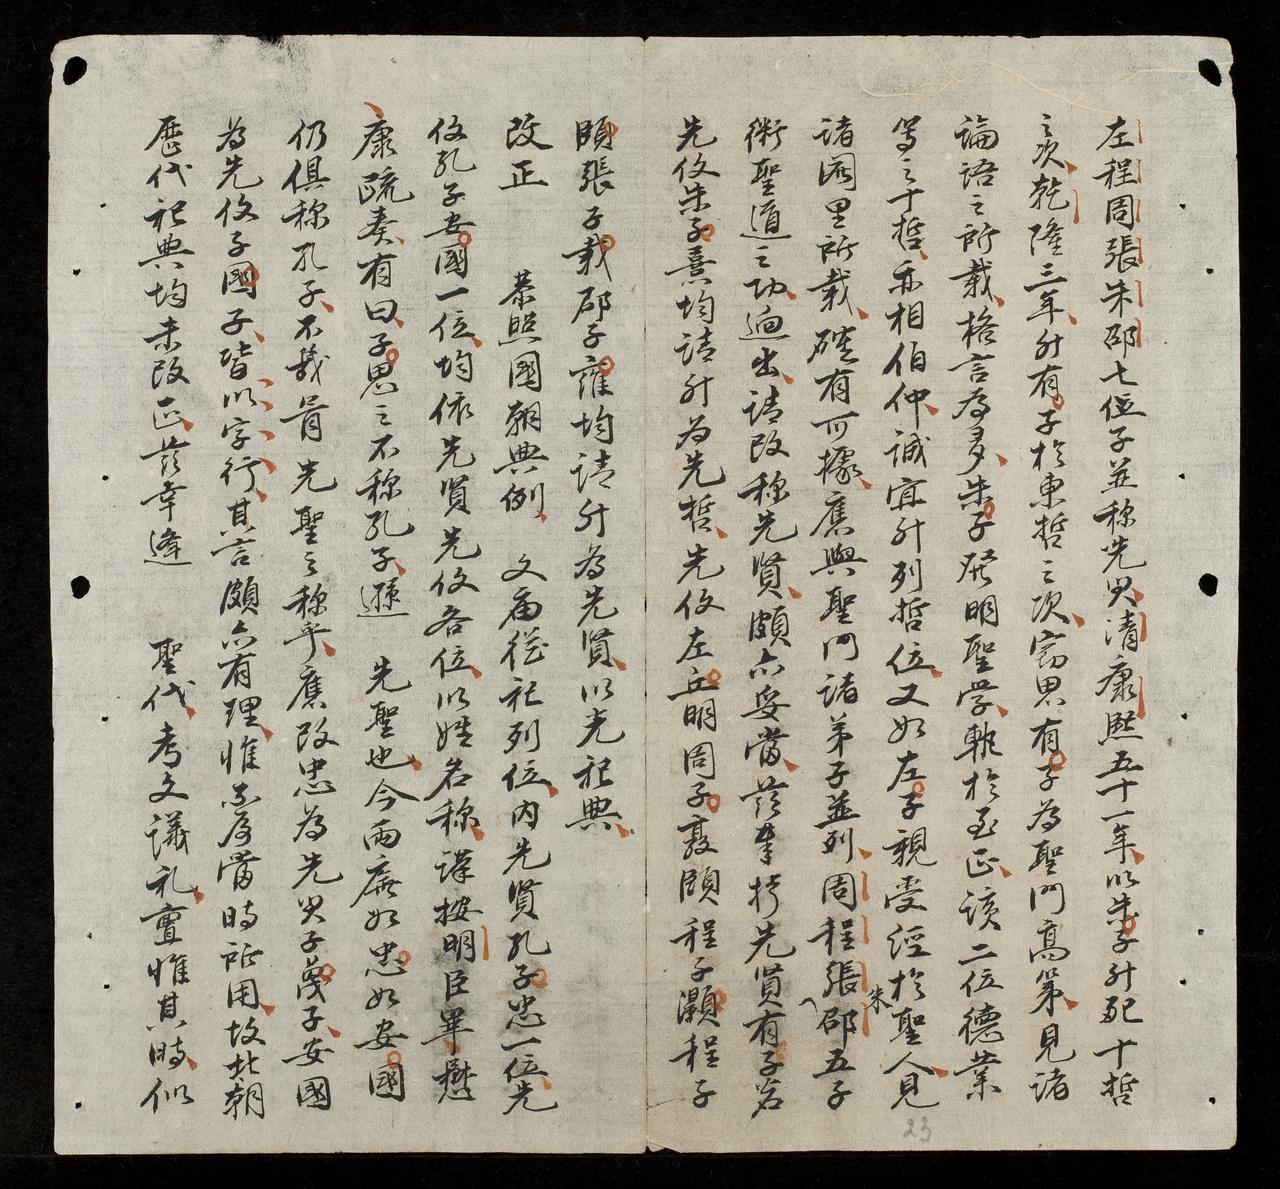 左程周張朱邵七位子並称先儒清康熙五十一年以朱子升配十哲
之次乾隆三年升有子於東哲之次窃思有子為聖門高第見諸
論語之所載格言為多朱子發明聖学軌於至正該二位德業
等之十哲亦相伯仲誠宜升列哲位又如左子親受經於聖人見
諸闕里所載礭有可據應與聖門諸弟子並列周程張朱邵五子
衛聖道之功逈出請改称先賢頗亦妥當茲奉将先賢有子若
先伩朱子熹均請升为先哲先伩左丘明周子敦頤程子灝程子
頤張子載邵子雍均請升為先賢以光祀典
改正　恭照國朝典例　文庙從祀列位内先賢孔子忠一位先
伩孔子安國一位均依先賢先伩各位以姓名称謹按明臣畢懋
康疏奏有曰子思之不称孔子遜　先聖也今兩廡如忠如安國
仍俱称孔子不幾肩先聖之称乎應改忠為先儒子蔑子安國
為先伩子國子皆以字行其言頗亦有理惟不為當時所用故北朝
歷代祀典均未改正茲幸逢　聖代考文議礼亶惟其時似